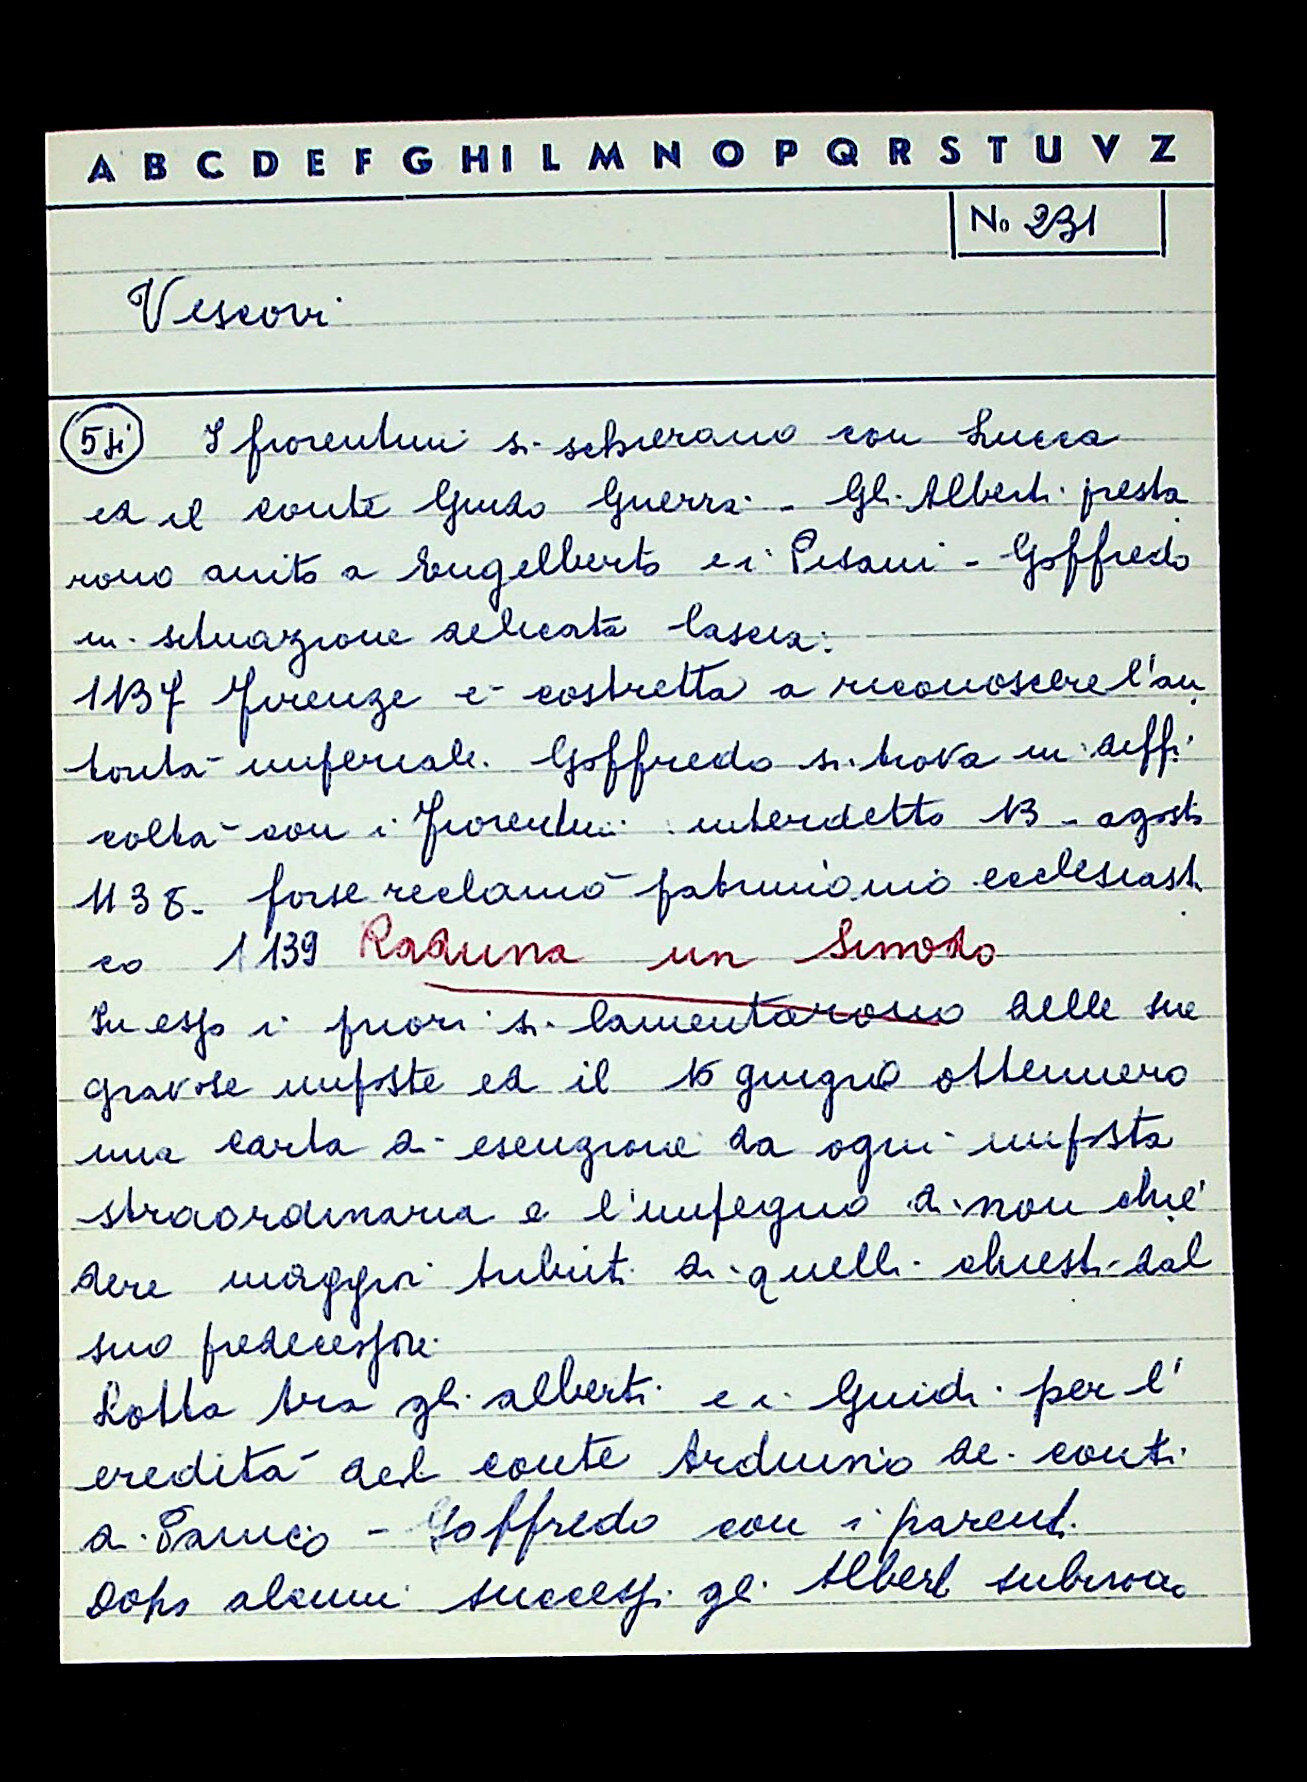 A B C D E F G HI L M N O P Q R S T U V Z
No 231
Vescovi
I fiorentini si schierano con Lucca
ed il conte Guido Guerra - Gli Alberti presta
rono aiuto a Engelberto e i Pisani - Goffredo
in situazione delicata lascia:
1137 Firenze è costretta a riconoscere l'au
torità imperiale. Goffredo si trova in diffi
coltà con i Fiorentini: interdetto 13 - agosto
1138 - forse reclamò patrimonio ecclesiasti
co 1139 Raduna un Sinodo
In esso i priori si lamentarono delle sue
gravose imposte ed il 15 giugno ottennero
una carta di esenzione da ogni imposta
straordinaria e l'impegno di non chie
dere maggiori tributi di quelli chiesti dal
suo predecessore.
Lotta tra gli alberti e i Guidi per l'
eredità del conte Arduino dei conti
di Panico - Goffredo con i parenti.
Dopo alcuni successi gli Alberti subirono